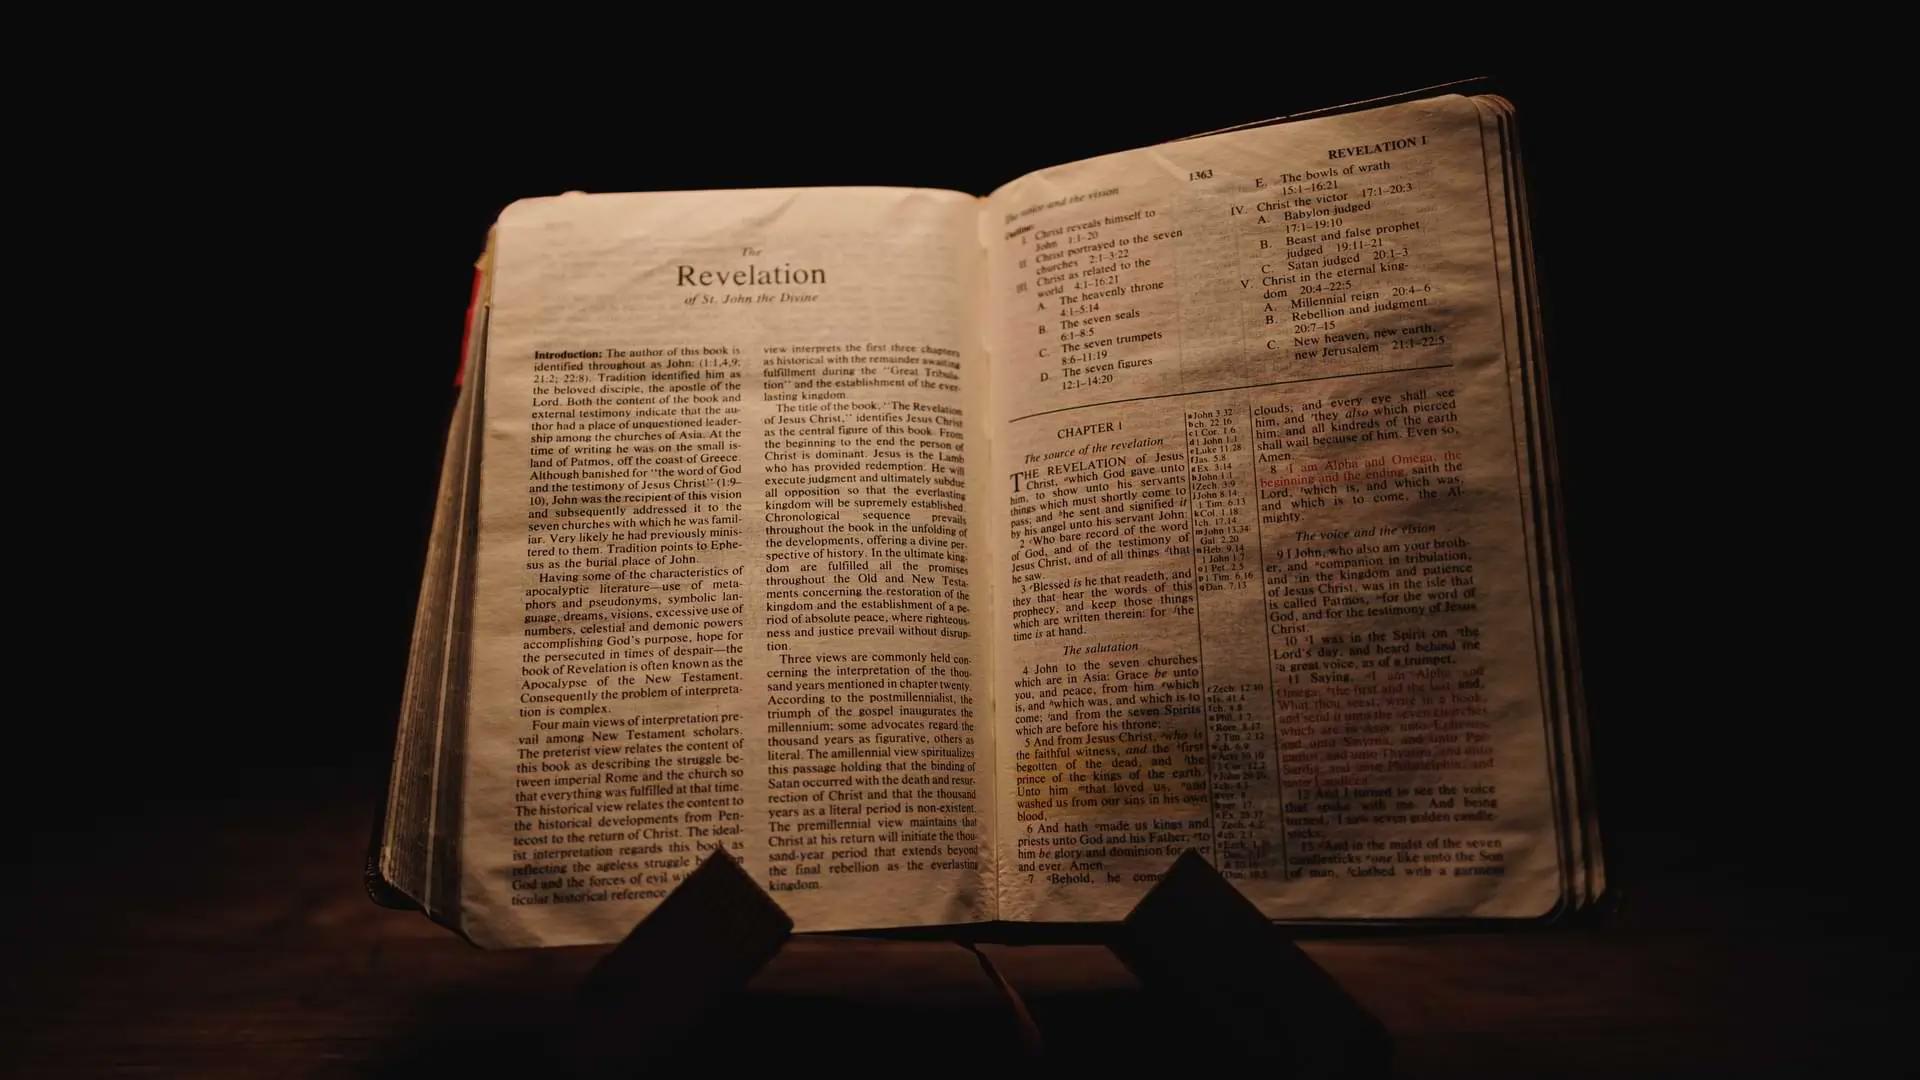 The
Revelation
of St. John the Divine
Introduction: The author of this book is
identified throughout as John: (1:1,4,9;
21:2; 22:8). Tradition identified him as
the beloved disciple, the apostle of the
Lord. Both the content of the book and
external testimony indicate that the au-
thor had a place of unquestioned leader-
ship among the churches of Asia. At the
time of writing he was on the small is-
land of Patmos, off the coast of Greece.
Although banished for "the word of God
and the testimony of Jesus Christ" (1:9–
10), John was the recipient of this vision
and subsequently addressed it to the
seven churches with which he was famil-
iar. Very likely he had previously minis-
tered to them. Tradition points to Ephe-
sus as the burial place of John.
Having some of the characteristics of
apocalyptic literature—use of meta-
phors and pseudonyms, symbolic lan-
guage, dreams, visions, excessive use of
numbers, celestial and demonic powers
accomplishing God's purpose, hope for
the persecuted in times of despair—the
book of Revelation is often known as the
Apocalypse of the New Testament.
Consequently the problem of interpreta-
tion is complex.
Four main views of interpretation pre-
vail among New Testament scholars.
The preterist view relates the content of
this book as describing the struggle be-
tween imperial Rome and the church so
that everything was fulfilled at that time.
The historical view relates the content to
the historical developments from Pen-
tecost to the return of Christ. The ideal-
ist interpretation regards this book as
reflecting the ageless struggle
God and the forces of evil
ticular historical reference
view interprets the first three chapters
as historical with the remainder awaiting
fulfillment during the "Great Tribula-
tion" and the establishment of the ever-
lasting kingdom.
The title of the book, "The Revelation
of Jesus Christ," identifies Jesus Christ
as the central figure of this book. From
the beginning to the end the person of
Christ is dominant. Jesus is the Lamb
who has provided redemption. He will
execute judgment and ultimately subdue
all opposition so that the everlasting
kingdom will be supremely established.
Chronological sequence prevails
throughout the book in the unfolding of
the developments, offering a divine per-
spective of history. In the ultimate king-
dom are fulfilled all the promises
throughout the Old and New Testa-
ments concerning the restoration of the
kingdom and the establishment of a pe-
riod of absolute peace, where righteous-
ness and justice prevail without disrup-
tion.
Three views are commonly held con-
cerning the interpretation of the thou-
sand years mentioned in chapter twenty.
According to the postmillennialist, the
triumph of the gospel inaugurates the
millennium; some advocates regard the
thousand years as figurative, others as
literal. The amillennial view spiritualizes
this passage holding that the binding of
Satan occurred with the death and resur-
rection of Christ and that the thousand
years as a literal period is non-existent.
The premillennial view maintains that
Christ at his return will initiate the thou-
sand-year period that extends beyond
the final rebellion as the everlasting
kingdom.
The voice and the vision
1363
REVELATION 1
Outline:
I. Christ reveals himself to
John 1:1–20
II. Christ portrayed to the seven
churches 2:1–3:22
III. Christ as related to the
world 4:1–16:21
A. The heavenly throne
4:1–5:14
B. The seven seals
6:1–8:5
C. The seven trumpets
8:6–11:19
D. The seven figures
12:1–14:20
E. The bowls of wrath
15:1–16:21
IV. Christ the victor 17:1–20:3
A. Babylon judged
17:1–19:10
B. Beast and false prophet
judged 19:11–21
C. Satan judged 20:1–3
V. Christ in the eternal king-
dom 20:4–22:5
A. Millennial reign 20:4–6
B. Rebellion and judgment
20:7–15
C. New heaven, new earth,
new Jerusalem 21:1–22:5
CHAPTER 1
The source of the revelation
THE REVELATION of Jesus
Christ, which God gave unto
him, to show unto his servants
things which must shortly come to
pass; and he sent and signified it
by his angel unto his servant John:
2 Who bare record of the word
of God, and of the testimony of
Jesus Christ, and of all things that
he saw.
3 Blessed is he that readeth, and
they that hear the words of this
prophecy, and keep those things
which are written therein: for the
time is at hand.
The salutation
4 John to the seven churches
which are in Asia: Grace be unto
you, and peace, from him which
is, and which was, and which is to
come; and from the seven Spirits
which are before his throne;
5 And from Jesus Christ, who is
the faithful witness, and the first
begotten of the dead, and the
prince of the kings of the earth.
Unto him that loved us, and
washed us from our sins in his own
blood,
6 And hath made us kings and
priests unto God and his Father; to
him be glory and dominion for ever
and ever. Amen.
7 Behold, he
John 3.32
ch. 22.16
1 Cor. 1.6
1 John 1.1
Luke 11.28
Jas. 5.8
Ex. 3.14
John 1.1
Zech. 3.9
John 8.14
1 Tim. 6.13
Col. 1.18
ch. 17.14
John 13.34
Gal. 2.20
Heb. 9.14
1 John 1.7
1 Pet. 2.5
1 Tim. 6.16
Dan. 7.13
Zech. 12.10
Is. 41.4
clouds; and every eye shall see
him, and they also which pierced
him: and all kindreds of the earth
shall wail because of him. Even so,
Amen.
8 I am Alpha and Omega, the
beginning and the ending, saith the
Lord, which is, and which was,
and which is to come, the Al-
mighty.
The voice and the vision
9 I John, who also am your broth-
er, and companion in tribulation,
and in the kingdom and patience
of Jesus Christ, was in the isle that
is called Patmos, for the word of
God, and for the testimony of Jesus
Christ.
10 I was in the Spirit on the
Lord's day, and heard behind me
a great voice, as of a trumpet,
11 Saying, I am Alpha and
Omega, the first and the last: and,
What thou seest, write in a book,
and send it unto the seven churches
which are in Asia; unto Ephesus,
and unto Smyrna, and unto Per-
gamos, and unto Thyatira, and unto
Sardis, and unto Philadelphia, and
unto Laodicea.
12 And I turned to see the voice
that spake with me. And being
turned, I saw seven golden candle-
sticks;
13 And in the midst of the seven
candlesticks one like unto the Son
of man, clothed with a garment